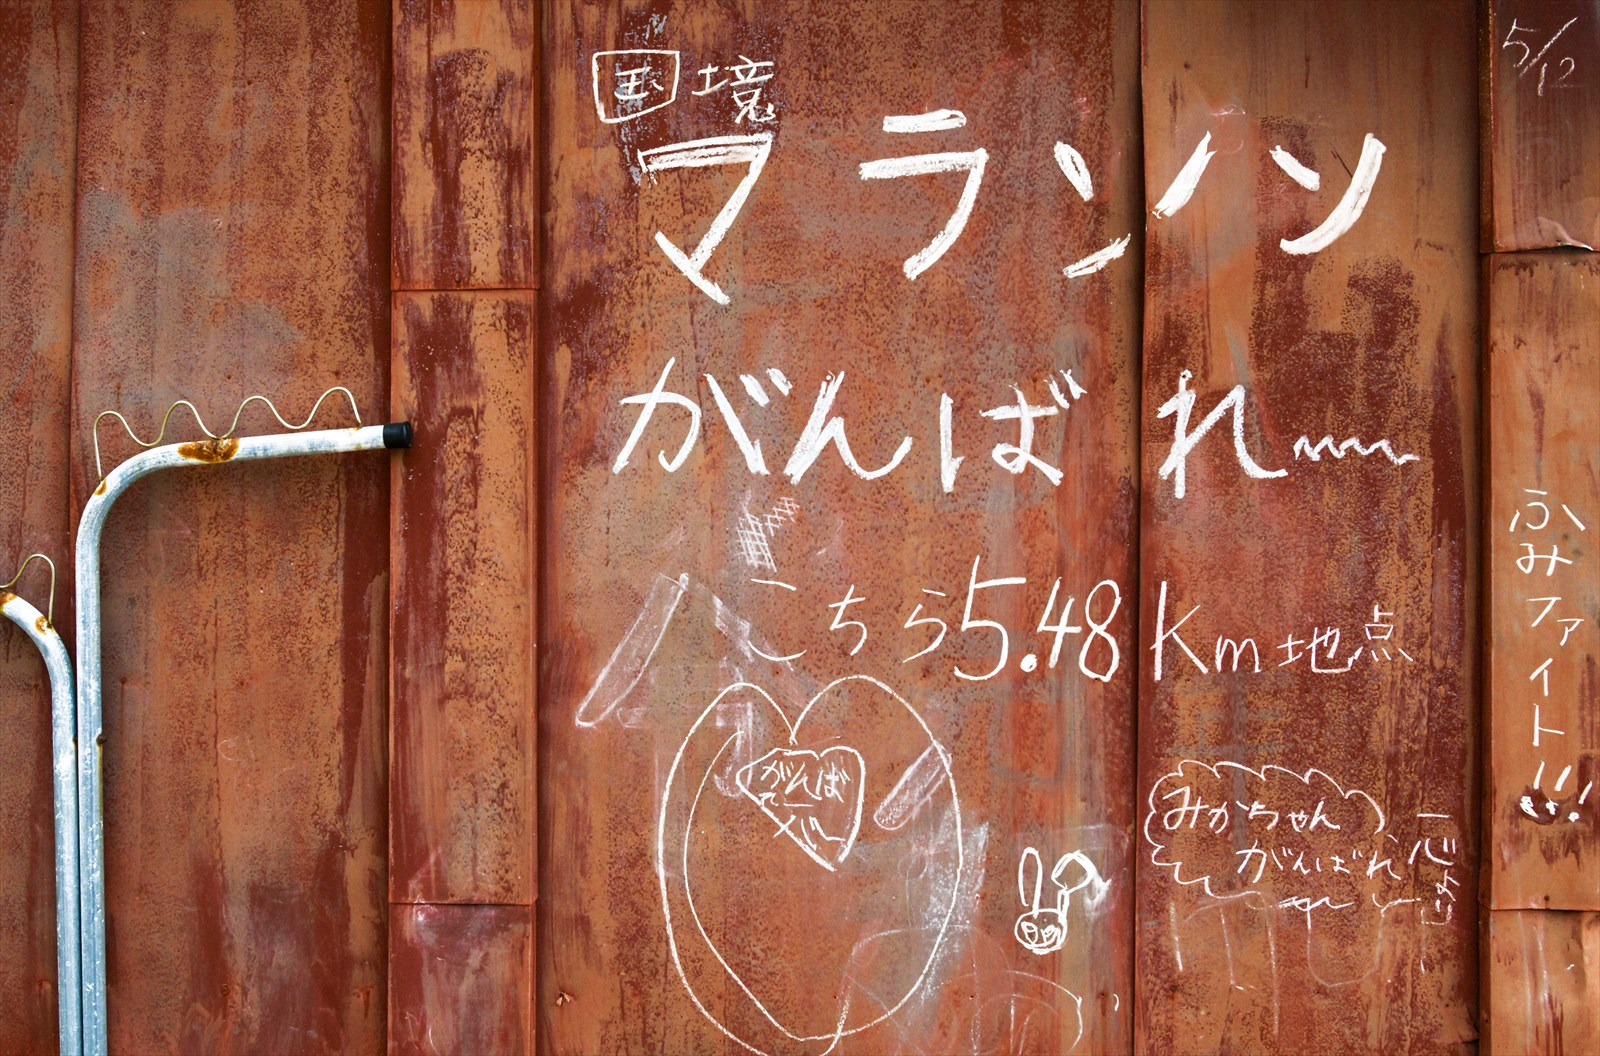 国境
マラソン
がんばれ〜
こちら5.48Km地点
がんば
れー
みかちゃん
がんばれ
5/12
ふみファイト!!!